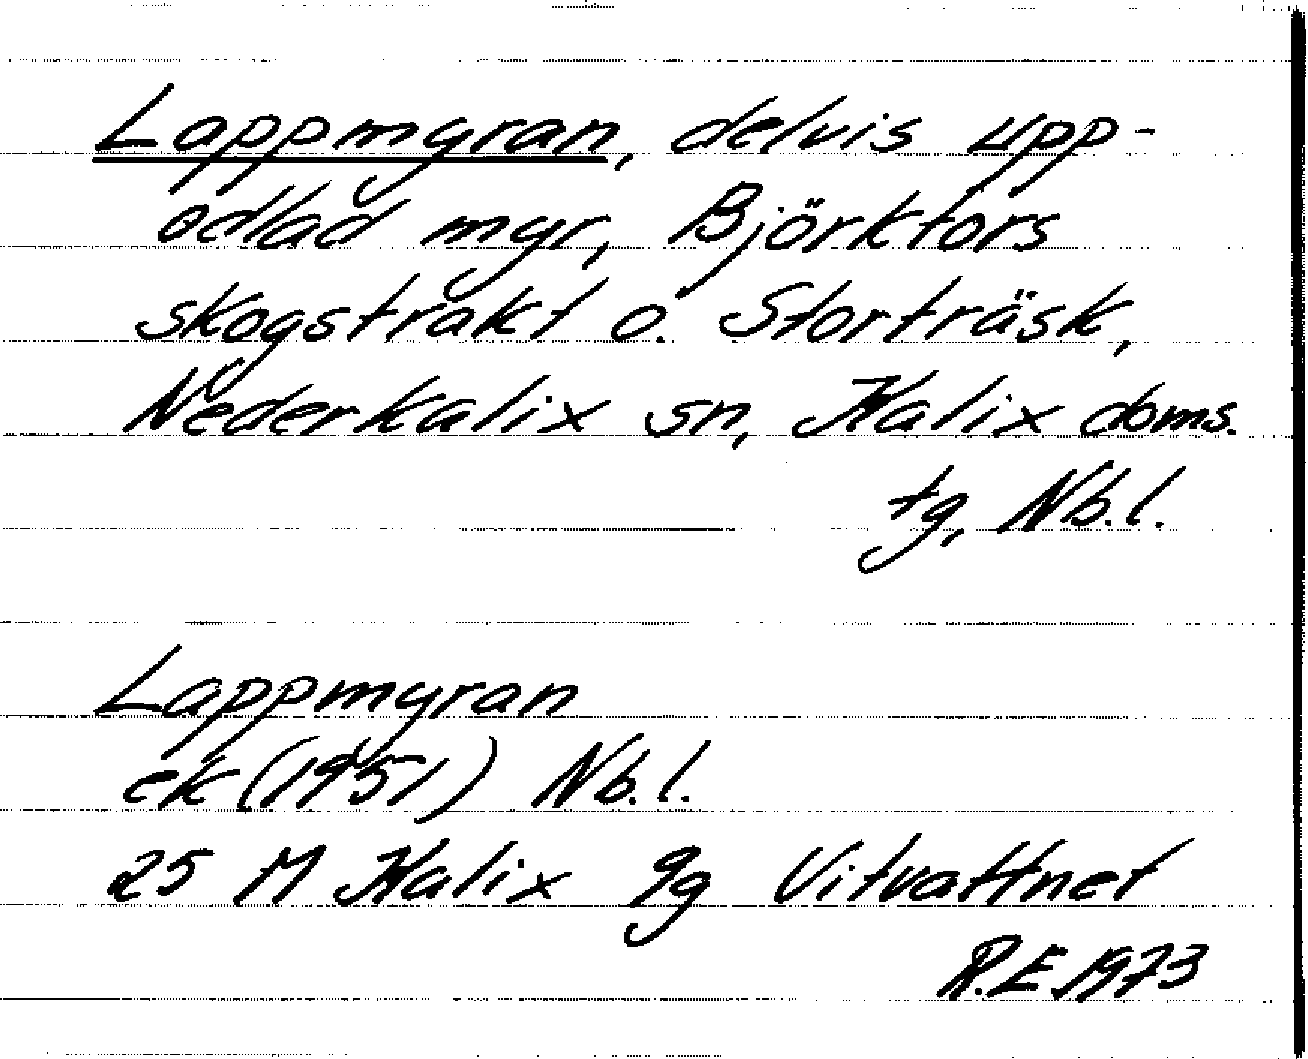 Lappmyran, delvis upp-
odlad myr, Björkfors
skogstrakt o. Storträsk,
Nederkalix sn, Kalix doms.
tg, Nb.l.
Lappmyran
ek (1951) Nb.l.
25 M Kalix 9g Vitvattnet
R.E. 1973